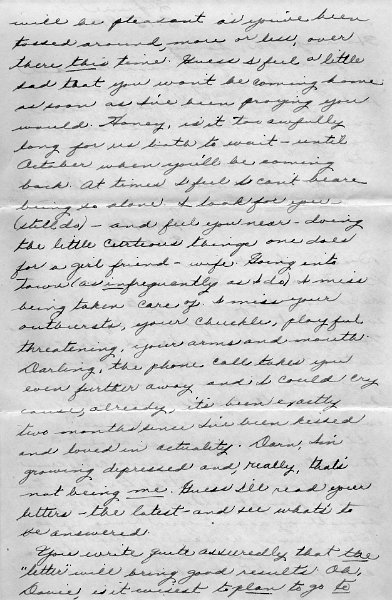 will be pleasant as you've been
tossed around, more or less, over
there this time. Guess I feel a little
sad that you won't be coming home
as soon as I've been praying you
would. Honey, is it too awfully
long for us both to wait - until
October when you'll be coming
back. At times I feel I can't beare
being so alone. I look for you
(still do) - and feel you near - doing
the little courteous things one does
for a girl friend - wife. Going into
town (as infrequently as I do) I miss
being taken care of. I miss your
outbursts, your chuckle, playful
threatening, your arms and mouth.
Darling, the phone call takes you
even further away and I could cry
cause, already, it's been exactly
two months since I've been kissed
and loved in actuality. Darn, I'm
growing depressed and, really, that's
not being me. Guess I'll read your
letters - the latest - and see what's to
be answered.
You write quite assuredly that the
"letter" will bring good results. Oh,
is it wisest to plan to go to